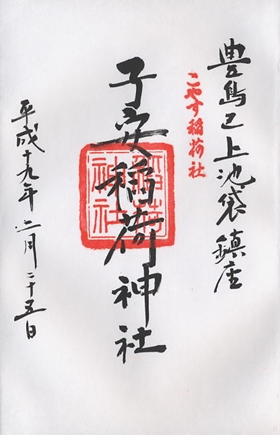 豊島区上池袋鎮座
こやす稲荷社
子安稲荷神社
稲荷神社
平成十九年二月二十五日